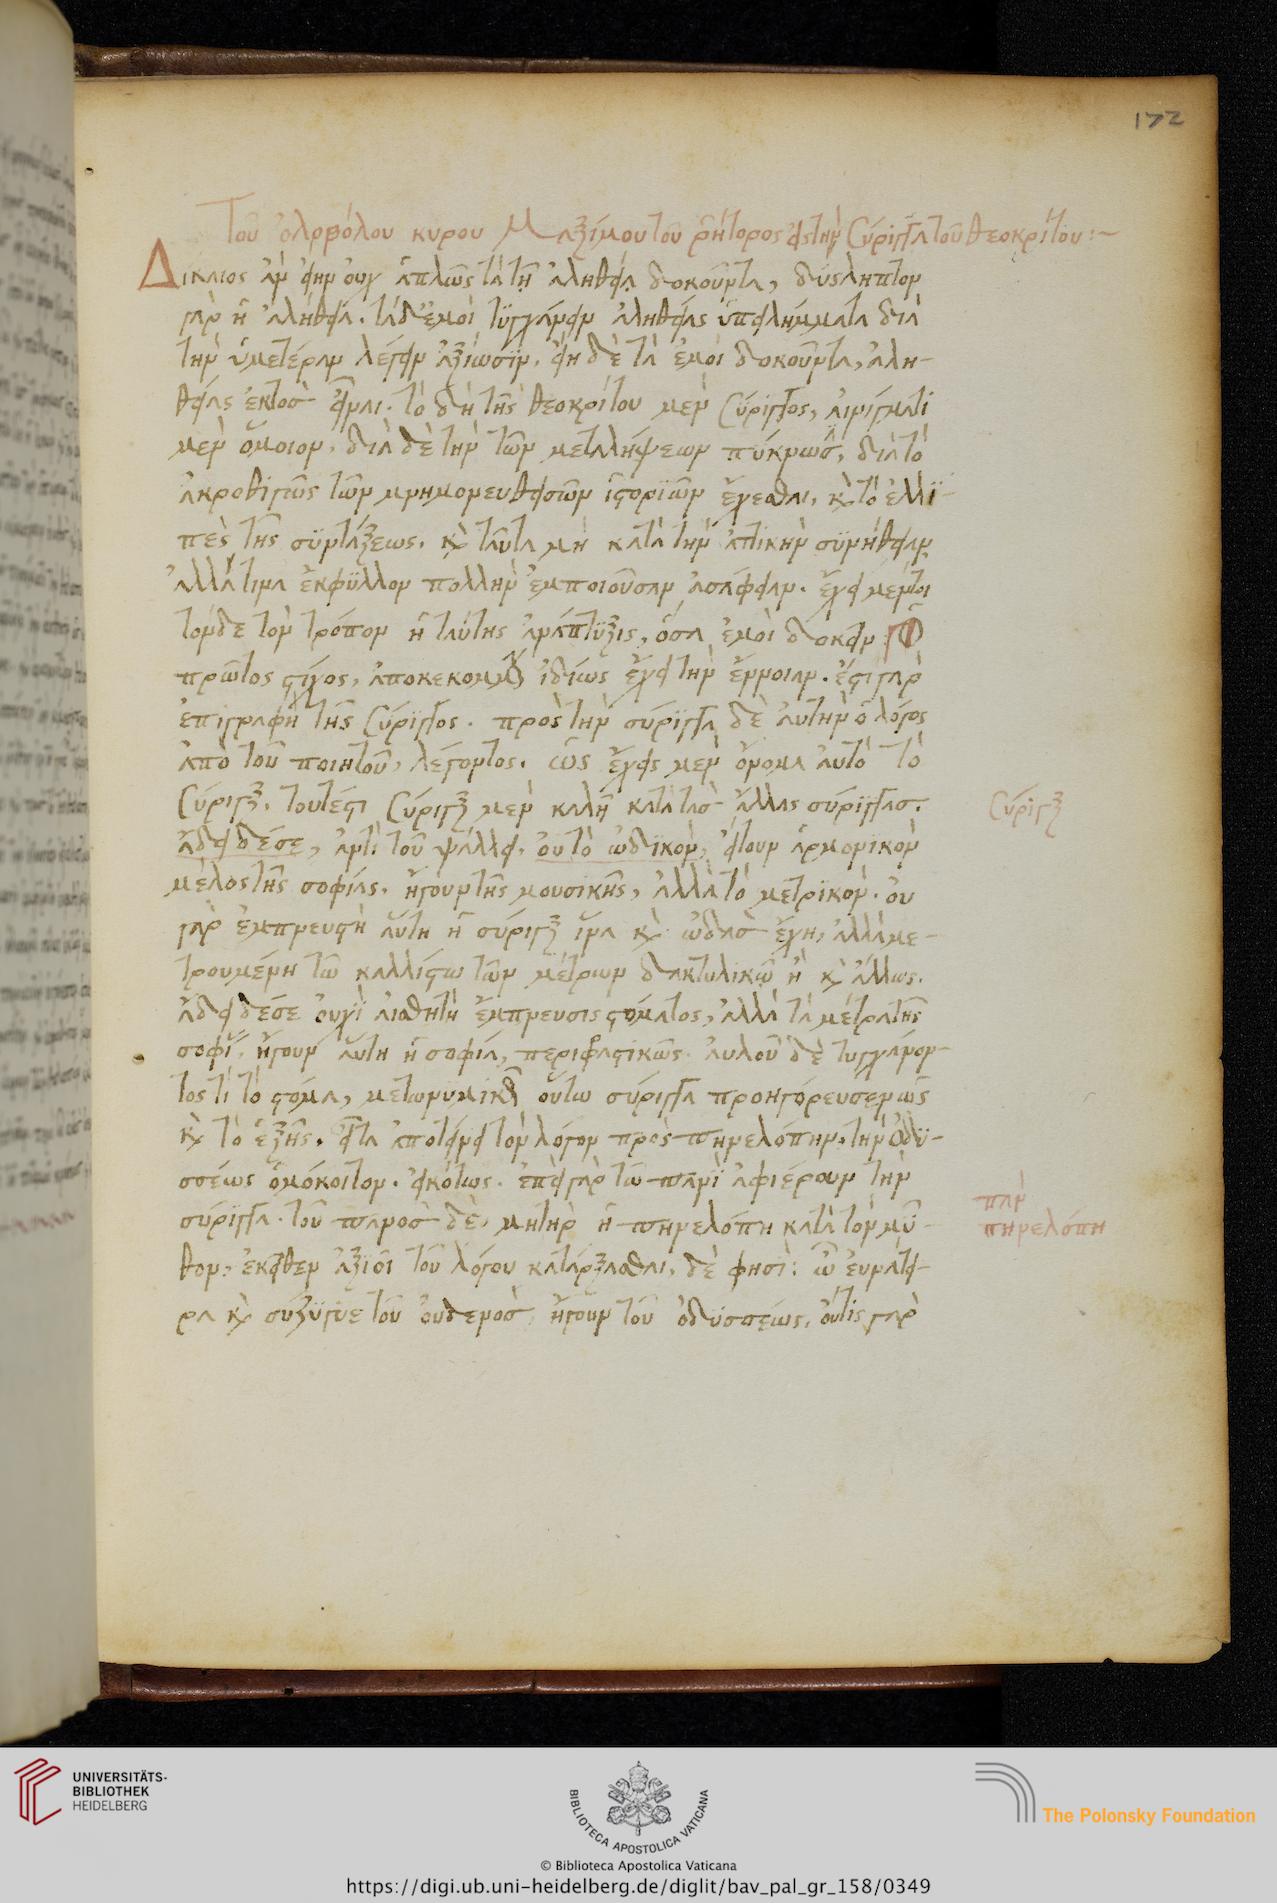 172
Τοῦ ὁλοβόλου κυροῦ Μαξίμου τοῦ ῥήτορος εἰς τὴν Σύριγγα τοῦ Θεοκρίτου:~
Δίκαιος ἂν εἴην οὐχ ἁπλῶς τὰ τῇ ἀληθείᾳ δοκοῦντα, δύσληπτον
γὰρ ἡ ἀλήθεια. τὰ δ' ἐμοὶ τυγχάνειν ἀληθείας ὑπειλημμένα διὰ
τὴν ὑμετέραν λέγειν ἀξίωσιν. εἴη δὲ τὰ ἐμοὶ δοκοῦντα, ἀλη-
θείας ἐντὸς εἶναι. τὸ δὴ τῆς Θεοκρίτου μὲν Σύριγγος, αἰνίγματι
μὲν ὅμοιον, διὰ δὲ τὴν τῶν μεταλήψεων πύκνωσιν, διὰ τὸ
ἀκροθιγῶς τῶν μνημονευθεισῶν ἱστοριῶν ἔχεσθαι, καὶ τὸ ἐλλι-
πὲς τῆς συντάξεως. καὶ ταῦτα μὴ κατὰ τὴν ἀττικὴν συνήθειαν
ἀλλά τινα ἔκφυλλον πολλὴν ἐμποιοῦσαν ἀσάφειαν. ἔχει μέντοι
τόνδε τὸν τρόπον ἡ ταύτης ἀνάπτυξις, ὅσα ἐμοὶ δοκεῖν. Ὁ
πρῶτος στίχος, ἀποκεκομμένως ἰδίως ἔχει τὴν ἔννοιαν. ἔστι γὰρ
ἐπιγραφὴ τῆς Σύριγγος. πρὸς τὴν σύριγγα δὲ αὐτὴν ὁ λόγος
ἀπὸ τοῦ ποιητοῦ, λέγοντος. ὡς ἔχεις μὲν ὄνομα αὐτὸ τὸ
Σύριγξ. τουτέστι Σύριγξ μὲν καλῇ κατὰ τὰς ἄλλας σύριγγας.
ᾄδει δέ σε, ἀντὶ τοῦ ψάλλει, οὐ τὸ ᾠδικὸν, εἴτουν ἁρμονικὸν
μέλος τῆς σοφίας. ἤγουν τῆς μουσικῆς, ἀλλὰ τὸ μετρικόν. οὐ
γὰρ ἐμπνευστὴ αὕτη ἡ σύριγξ ἵνα καὶ ᾠδὰς ἔχῃ, ἀλλὰ με-
τρουμένη τῷ καλλίστῳ τῶν μέτρων δακτυλικῷ ἢ καὶ ἄλλως.
ᾄδει δέ σε οὐχὶ αἰσθητὴ ἔμπνευσις στόματος, ἀλλὰ τὰ μέτρα τῆς
σοφίας, ἤγουν αὕτη ἡ σοφία, περιφραστικῶς. αὐλοῦ δὲ τυγχάνον-
τος τί τὸ στόμα, μετωνυμικῶς οὕτω σύριγγα προηγόρευσεν ὡς
καὶ τὸ ἑξῆς. εἶτα ἀποτείνει τὸν λόγον πρὸς πηνελόπην, τὴν ὀδυ-
σσέως ὁμόκοιτον. εἰκότως. ἐπεὶ γὰρ τῷ πανὶ ἀφιέρουν τὴν
σύριγγα. τοῦ πανὸς δὲ, μήτηρ ἡ πηνελόπη κατὰ τὸν μῦ-
θον, ἐκεῖθεν ἀξιοῖ τοῦ λόγου κατάρξασθαι, δέ φησι: ὦ εὐνάτει-
ρα καὶ σύζυγε τοῦ οὐδενὸς, ἤγουν τοῦ ὀδυσσέως. οὔτις γὰρ
Σύριγξ
πὰν
πηνελόπη
UNIVERSITÄTS-
BIBLIOTHEK
HEIDELBERG
BIBLIOTECA APOSTOLICA VATICANA
The Polonsky Foundation
© Biblioteca Apostolica Vaticana
https://digi.ub.uni-heidelberg.de/diglit/bav_pal_gr_158/0349